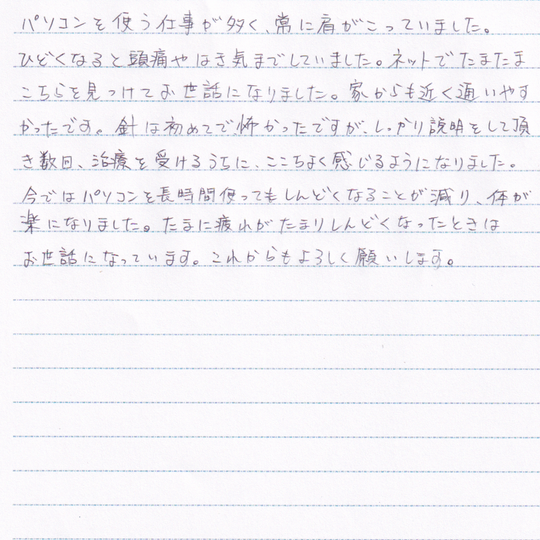 パソコンを使う仕事が多く、常に肩がこっていました。
ひどくなると頭痛やはき気までしていました。ネットでたまたま
こちらを見つけてお世話になりました。家からも近く通いやす
かったです。針は初めてで怖かったですが、しっかり説明をして頂
き数日、治療を受けるうちに、ここちよく感じるようになりました。
今ではパソコンを長時間使ってもしんどくなることが減り、体が
楽になりました。たまに疲れがたまりしんどくなったときは
お世話になっています。これからもよろしく願いします。